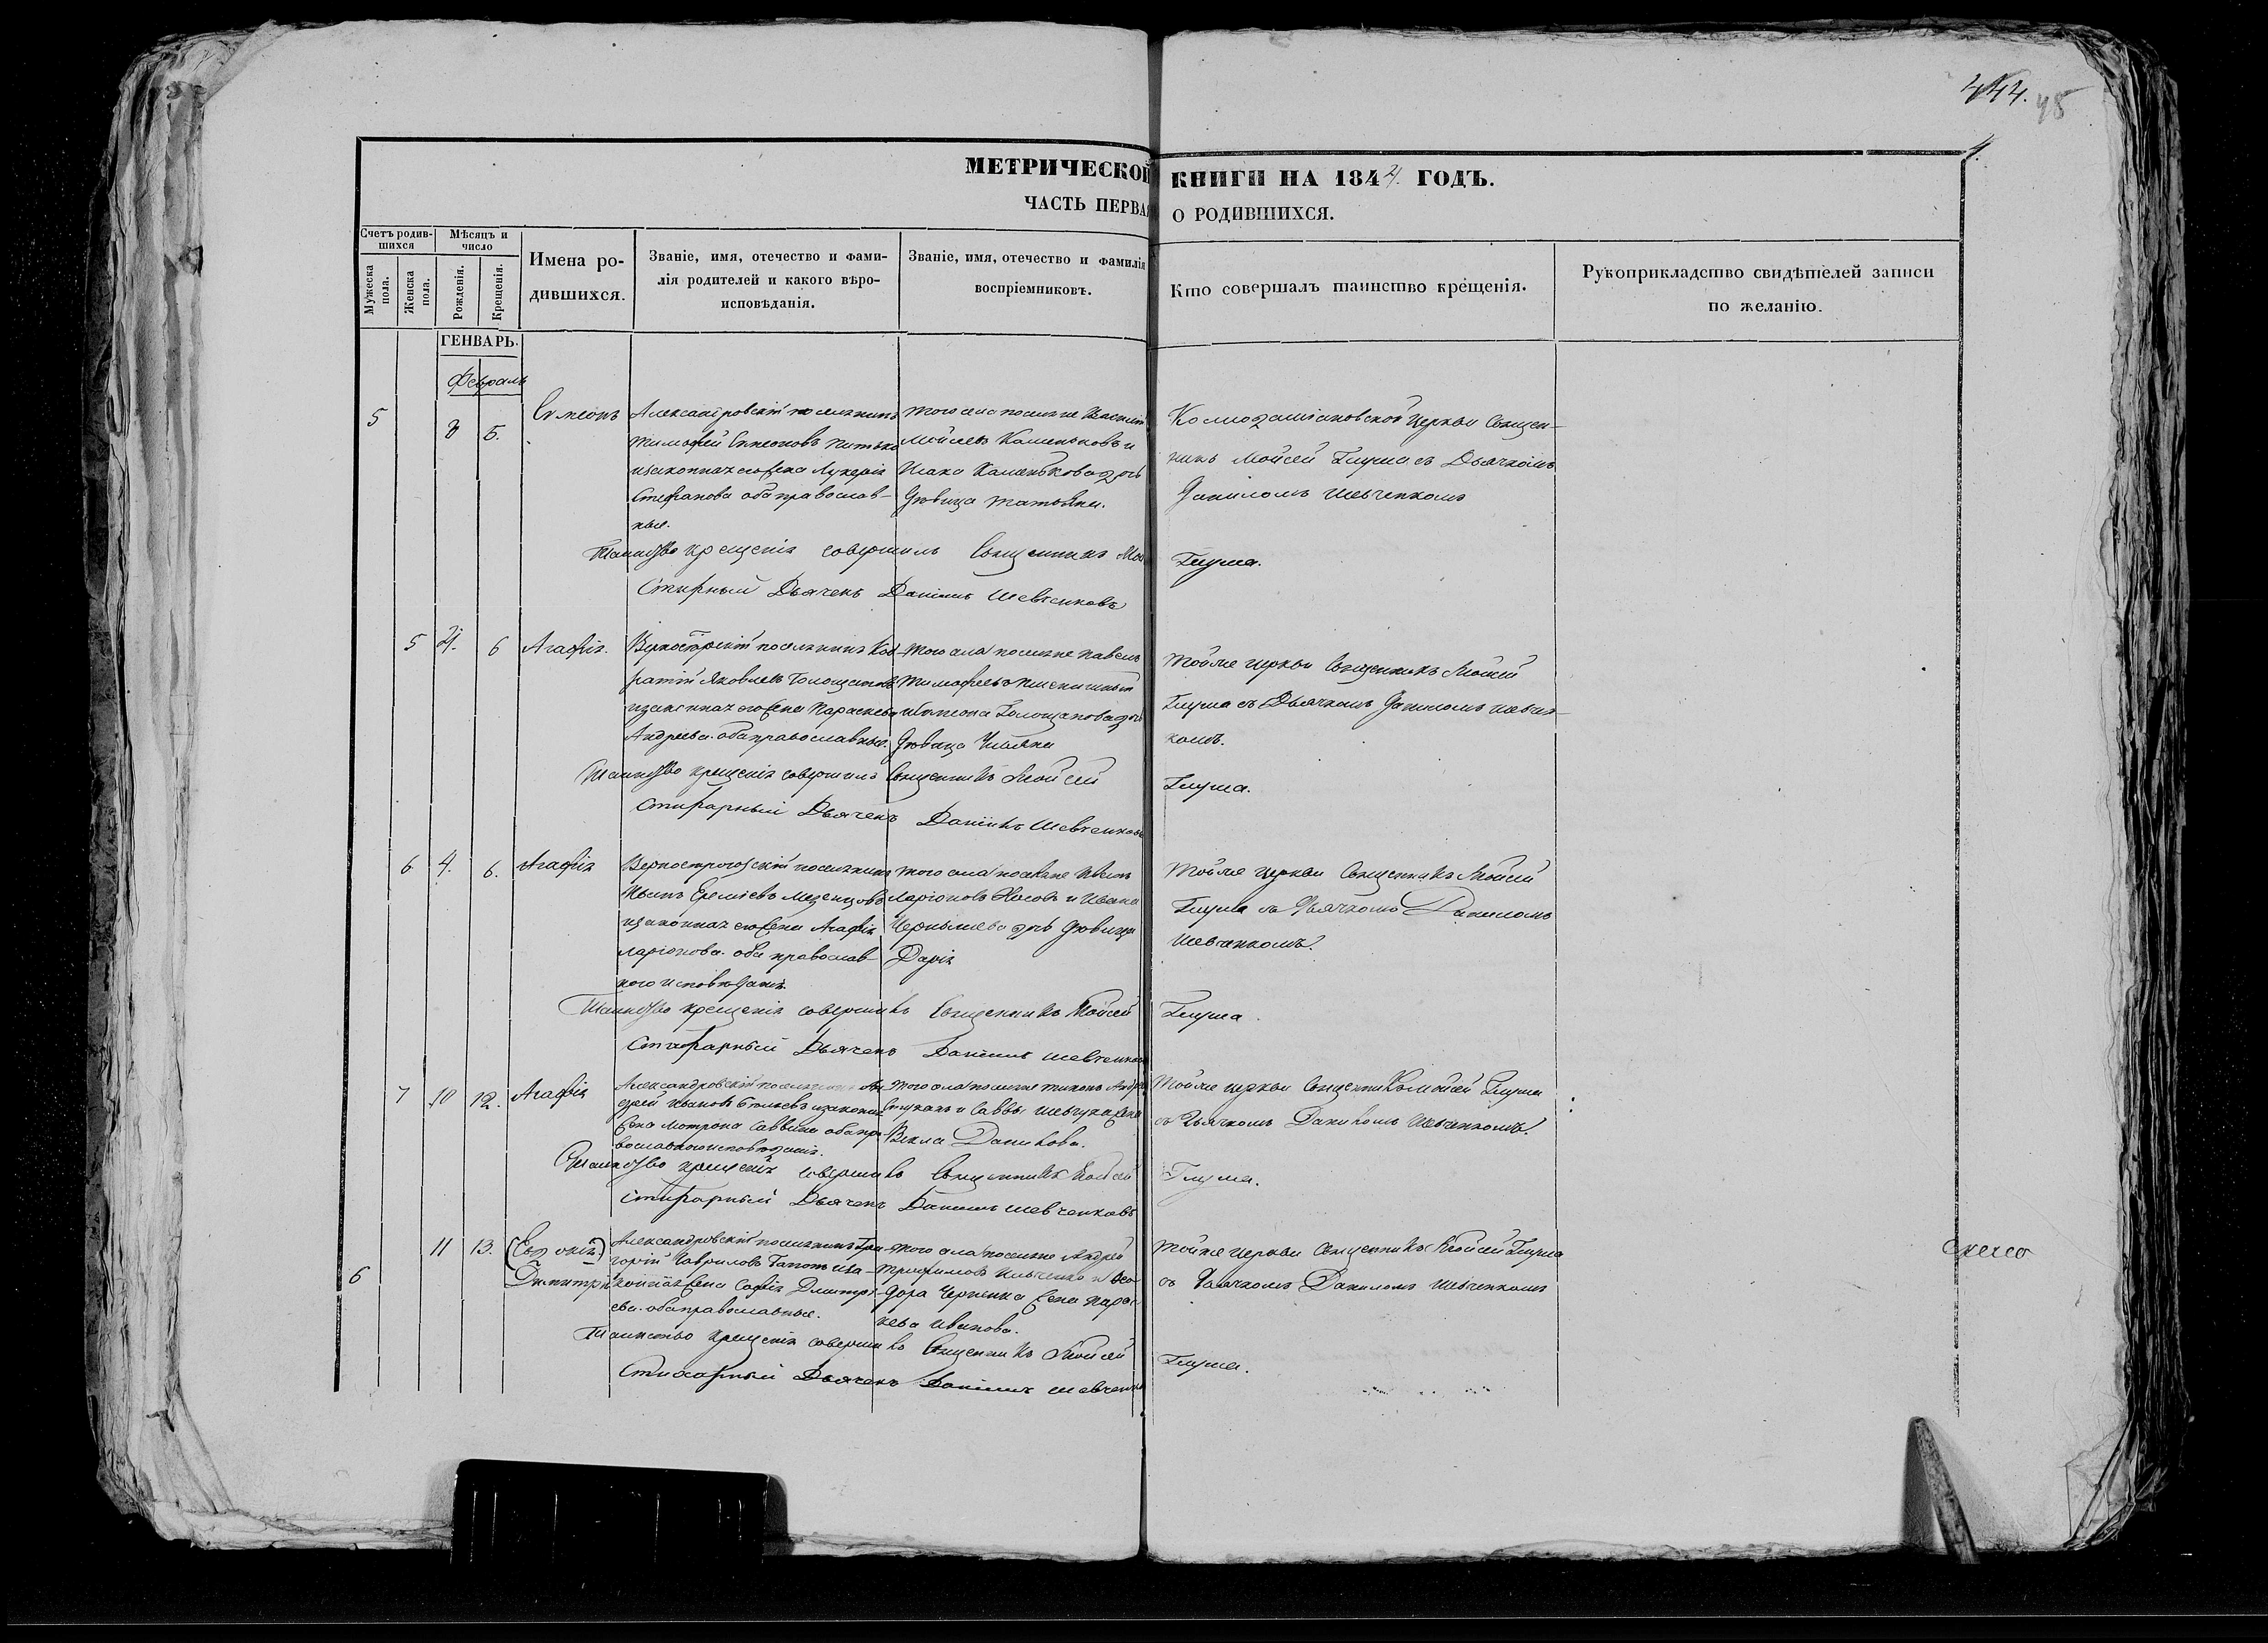 444. 45
МЕТРИЧЕСКОЙ КНИГИ НА 1844. ГОДЪ.
ЧАСТЬ ПЕРВАЯ О РОДИВШИХСЯ.
Счетъ родившихся
Мужеска пола.
Женска пола.
Мѣсяцъ и число
Рожденія.
Крещенія.
Имена родившихся.
Званіе, имя, отечество и фамилія родителей и какого вѣроисповѣданія.
Званіе, имя, отечество и фамилія воспріемниковъ.
Кто совершалъ таинство крещенія.
Рукоприкладство свидѣтелей записи по желанію.
ГЕНВАРЬ.
Февраль
5
5.
Симеонъ
Александровскій поселянинъ
Тимофей Симеоновъ
и законная его жена Лукерія
Стефанова оба православ-
ные.
того села поселяне
Мойсеевъ Каменьковъ и
Исака Каменькова дочь
Дѣвица Татьяна.
Космодаміановской Церкви Священ-
никъ Мойсей Глума съ Дьячкомъ
Даниломъ Шевченкомъ
Таинство крещенія совершилъ Священникъ Мой
Глума.
Стихарный Дьячекъ Даніилъ Шевченковъ
5
6
Агафія.
поселянинъ Код-
ратій Яковлевъ Голощаповъ
и законная его жена Параскева
Андреева. оба православные.
того села поселяне Павелъ
Тимофеевъ
и Симеона Голощапова дочь
Дѣвица Ульяна
Тойже церкви Священникъ Мойсей
Глума съ Дьячкомъ Даниломъ Шевчен-
комъ.
Таинство крещенія совершилъ Священникъ Мойсей
Глума.
Стихарный Дьячекъ Даніилъ Шевченковъ
6 4. 6.
Агафія
поселянинъ
Еремѣевъ Мезенцовъ
и законная его жена Агафія
Ларіонова. оба православ-
ного исповѣданія.
того села поселяне
Ларіоновъ Носовъ и Ивана
Чернышева дочь Дѣвица
Дарія
Тойже церкви Священникъ Мойсей
Глума съ Дьячкомъ Даниломъ
Шевченкомъ.
Таинство крещенія совершилъ Священникъ Мойсей
Глума.
Стихарный Дьячекъ Даніилъ Шевченковъ
7 10 12.
Агафія
Александровскій поселянинъ Ан-
дрей Ивановъ и законная
жена Мотрона Саввина оба пра-
вославного исповѣданія.
того села поселяне Тихонъ Андре
и Саввы Шевчука жена
Векла Данилова.
Тойже церкви Священникъ Мойсей Глума
съ Дьячкомъ Даниломъ Шевченкомъ.
Таинство крещенія совершилъ Священникъ Мойсей
Глума.
Стихарный Дьячекъ Даніилъ Шевченковъ
6
11 13.
(Евдокія)
Димитрій
Александровскій поселянинъ Гри-
горій Гавриловъ Гапонъ и за-
конная жена Софія Дмитрі-
ева. оба православные.
того села поселяне Андрей
Трофимовъ Ильченко и Исі-
дора Черненка жена Парас-
кева Иванова.
Тойже церкви Священникъ Мойсей Глума
съ Дьячкомъ Даниломъ Шевченкомъ
Таинство крещенія совершилъ Священникъ Мойсей
Глума.
Стихарный Дьячекъ Даніилъ Шевченко